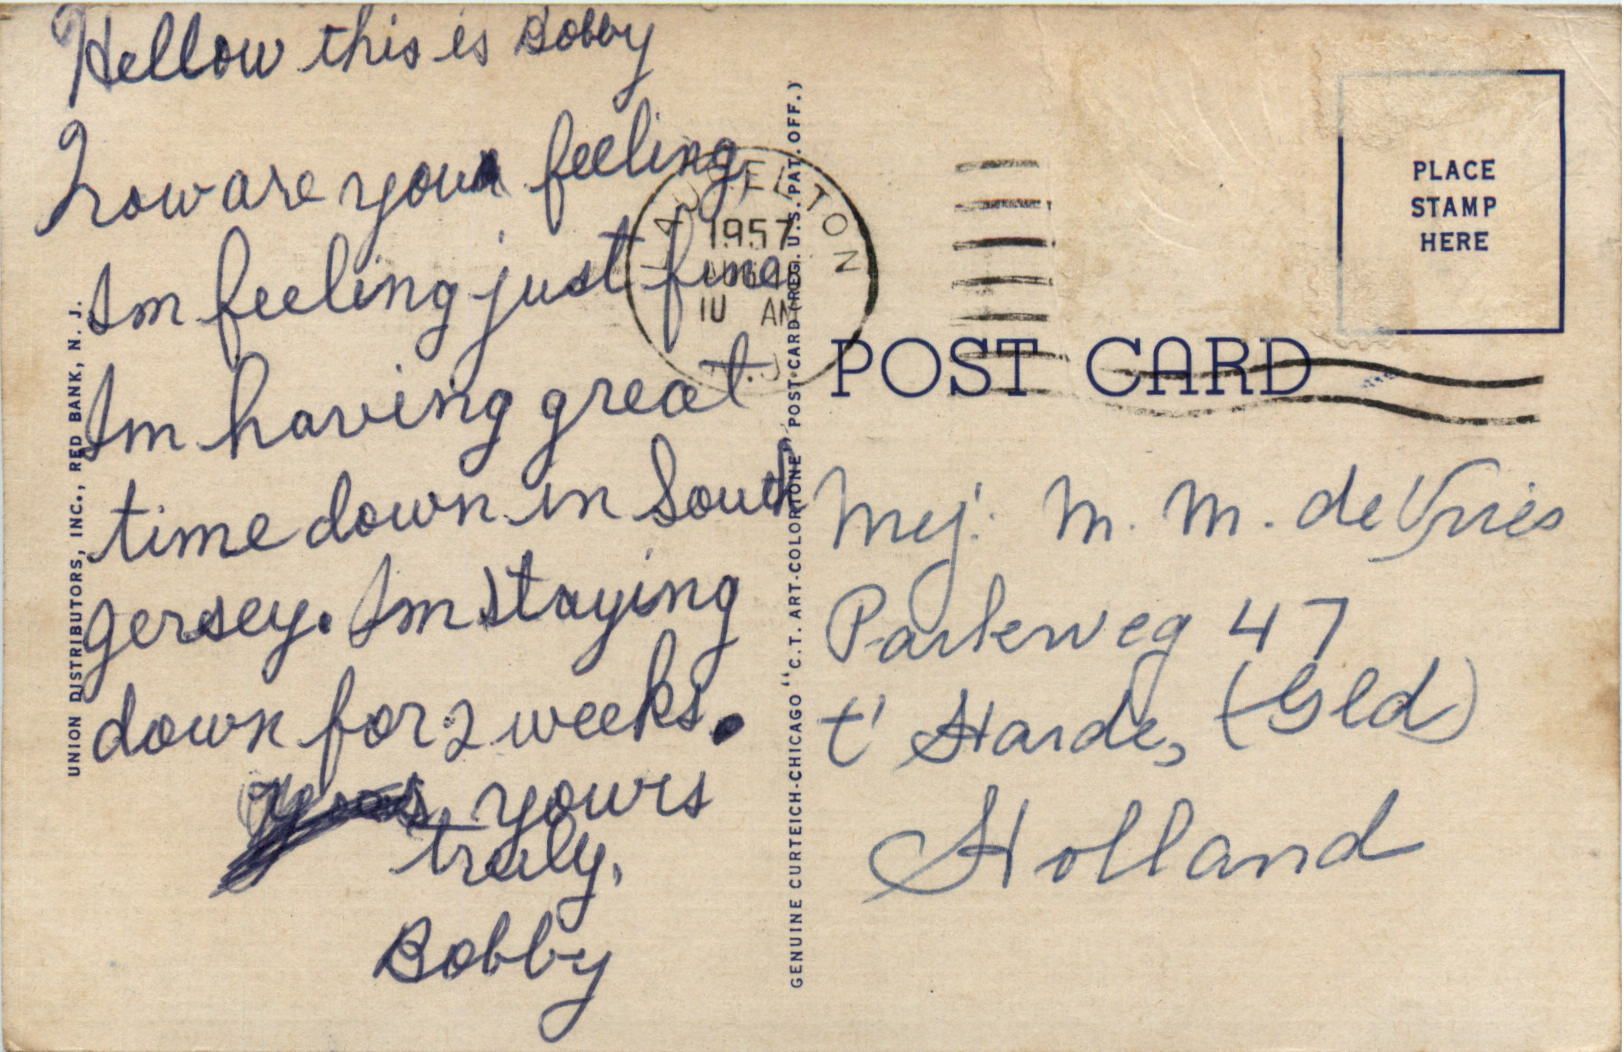 Hellow this is Bobby
how are you feeling
Im feeling just fine
Im having great
time down in South
gersey. Im staying
down for 2 weeks.
yours
truly,
Bobby
UNION DISTRIBUTORS, INC., RED BANK, N. J.
GENUINE CURTEICH-CHICAGO "C. T. ART-COLORTONE" POST CARD (REG. U.S. PAT. OFF.)
1957
10 AM
N.J.
PLACE
STAMP
HERE
POST CARD
Mej. M. M. de Vries
Parkweg 47
t' Harde, (Gld)
Holland